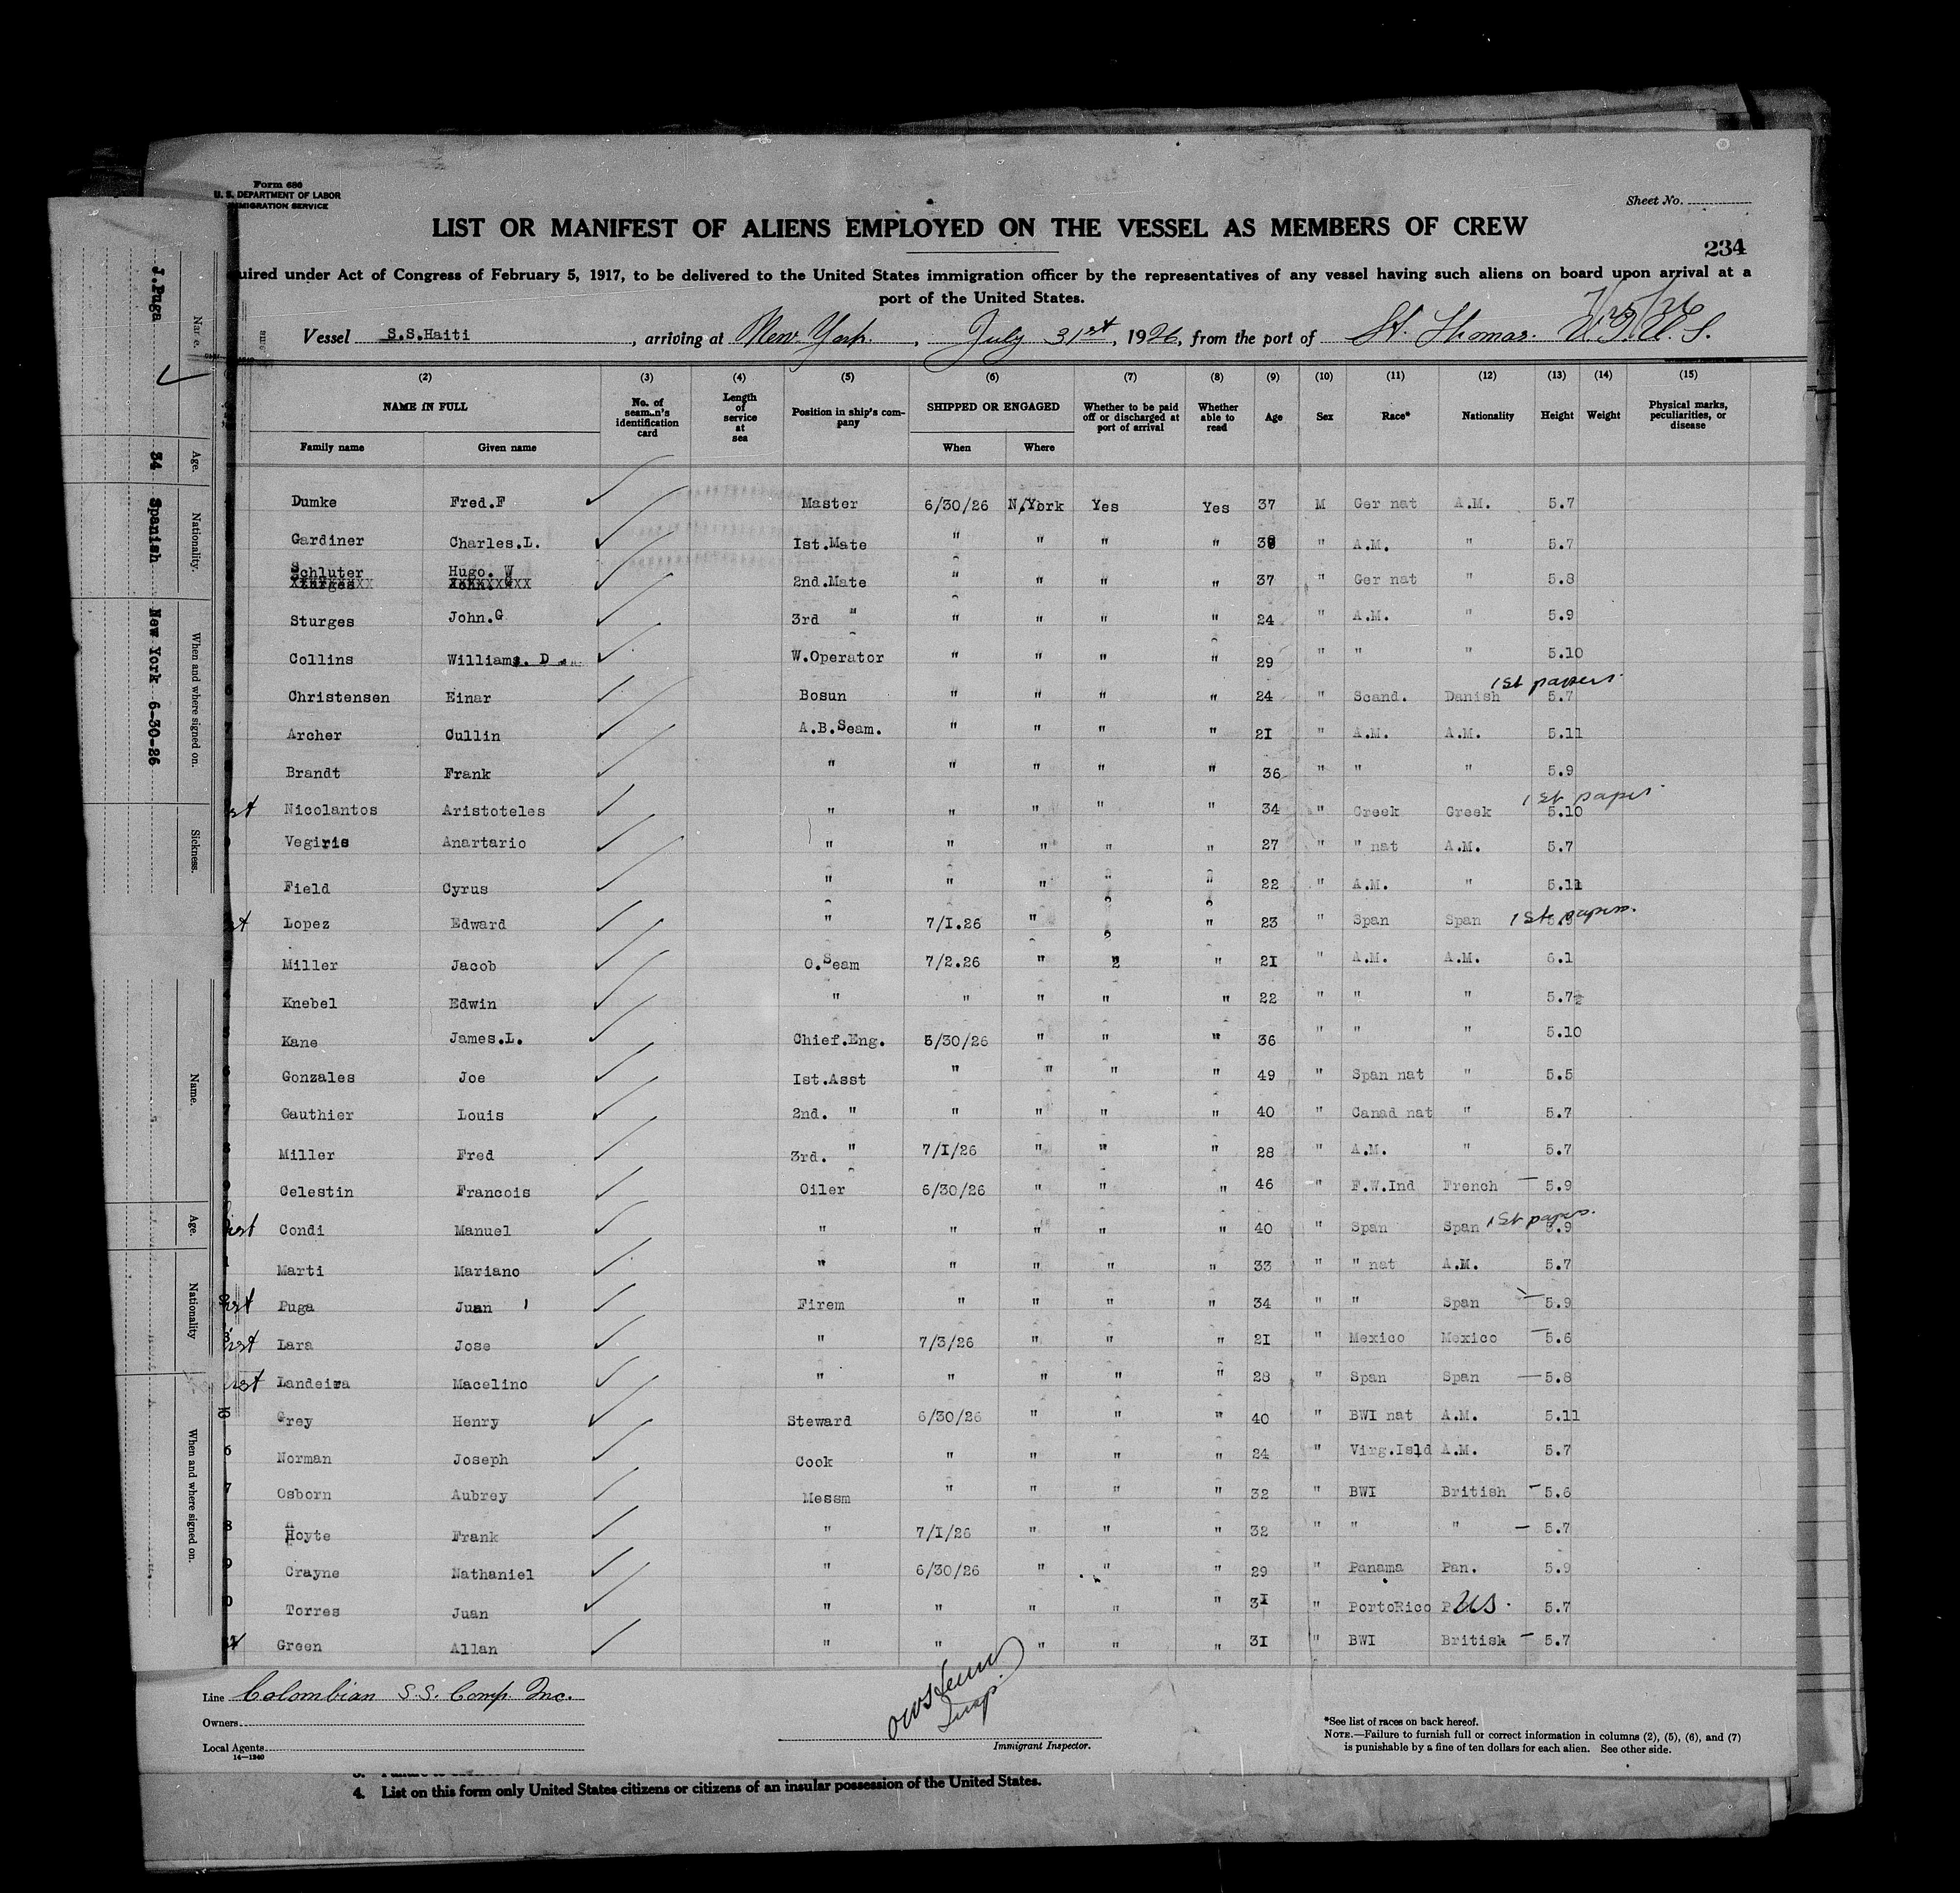 Form 686
U. S. DEPARTMENT OF LABOR
IMMIGRATION SERVICE
Sheet No.
LIST OR MANIFEST OF ALIENS EMPLOYED ON THE VESSEL AS MEMBERS OF CREW
234
uired under Act of Congress of February 5, 1917, to be delivered to the United States immigration officer by the representatives of any vessel having such aliens on board upon arrival at a
port of the United States.
Vessel S.S.Haiti, arriving at New York, July 31st, 1926, from the port of St. Thomas. V.I.U.S.
(2) (3) (4) (5) (6) (7) (8) (9) (10) (11) (12) (13) (14) (15)
NAME IN FULL No. of seaman's identification card Length of service at sea Position in ship's company SHIPPED OR ENGAGED Whether to be paid off or discharged at port of arrival Whether able to read Age Sex Race* Nationality Height Weight Physical marks, peculiarities, or disease
Family name Given name When Where
Dumke Fred.F Master 6/30/26 N,York Yes Yes 37 M Ger nat A.M. 5.7
Gardiner Charles.L. Ist.Mate " " " " " A.M. " 5.7
Schluter Hugo. W 2nd.Mate " " " " 37 " Ger nat " 5.8
Sturges John.G 3rd " " " " " 24 " A.M. " 5.9
Collins William. D W.Operator " " " " 29 " " " 5.10
Christensen Einar Bosun " " " " 24 " Scand. Danish 1st papers. 5.7
Archer Cullin A.B.Seam. " " " " 21 " A.M. A.M. 5.11
Brandt Frank " " " " " 36 " " " 5.9
Nicolantos Aristoteles " " " " " 34 " Greek Greek 1st paper. 5.10
Vegiris Anartario " " " " " 27 " " nat A.M. 5.7
Field Cyrus " " " " " 22 " A.M. " 5.11
Lopez Edward " 7/I.26 " " 23 " Span Span 1st papers.
Miller Jacob O.Seam 7/2.26 " " " 2I " A.M. A.M. 6.1
Knebel Edwin " " " " " 22 " " " 5.7½
Kane James.L. Chief.Eng. 5/30/26 " " " 36 " " " 5.10
Gonzales Joe Ist.Asst " " " " 49 " Span nat " 5.5
Gauthier Louis 2nd. " " " " " 40 " Canad nat " 5.7
Miller Fred 3rd. " 7/I/26 " " " 28 " A.M. " 5.7
Celestin Francois Oiler 6/30/26 " " " 46 " F.W.Ind French 5.9
Condi Manuel " " " " " 40 " Span Span 1st papers. 5.9
Marti Mariano " " " " " 33 " " nat A.M. 5.7
Puga Juan Firem " " " " 34 " " Span 5.9
Lara Jose " 7/3/26 " " " 2I " Mexico Mexico 5.6
Landeira Macelino " " " " " 28 " Span Span 5.8
Grey Henry Steward 6/30/26 " " " 40 " BWI nat A.M. 5.11
Norman Joseph Cook " " " " 24 " Virg.Isld A.M. 5.7
Osborn Aubrey Messm " " " " 32 " BWI British 5.6
Hoyte Frank " 7/I/26 " " " 32 " " " 5.7
Crayne Nathaniel " 6/30/26 " " " 29 " Panama Pan. 5.9
Torres Juan " " " " " 3I " PortoRico US. 5.7
Green Allan " " " " " 3I " BWI British 5.7
Line Colombian S.S. Comp. Inc.
Owners
Local Agents
14—1240
Immigrant Inspector.
*See list of races on back hereof.
NOTE.—Failure to furnish full or correct information in columns (2), (5), (6), and (7)
is punishable by a fine of ten dollars for each alien. See other side.
4. List on this form only United States citizens or citizens of an insular possession of the United States.
Name. Age. Nationality. When and where signed on. Sickness.
J.Puga 34 Spanish New York 6-30-26
Name. Age. Nationality When and where signed on.